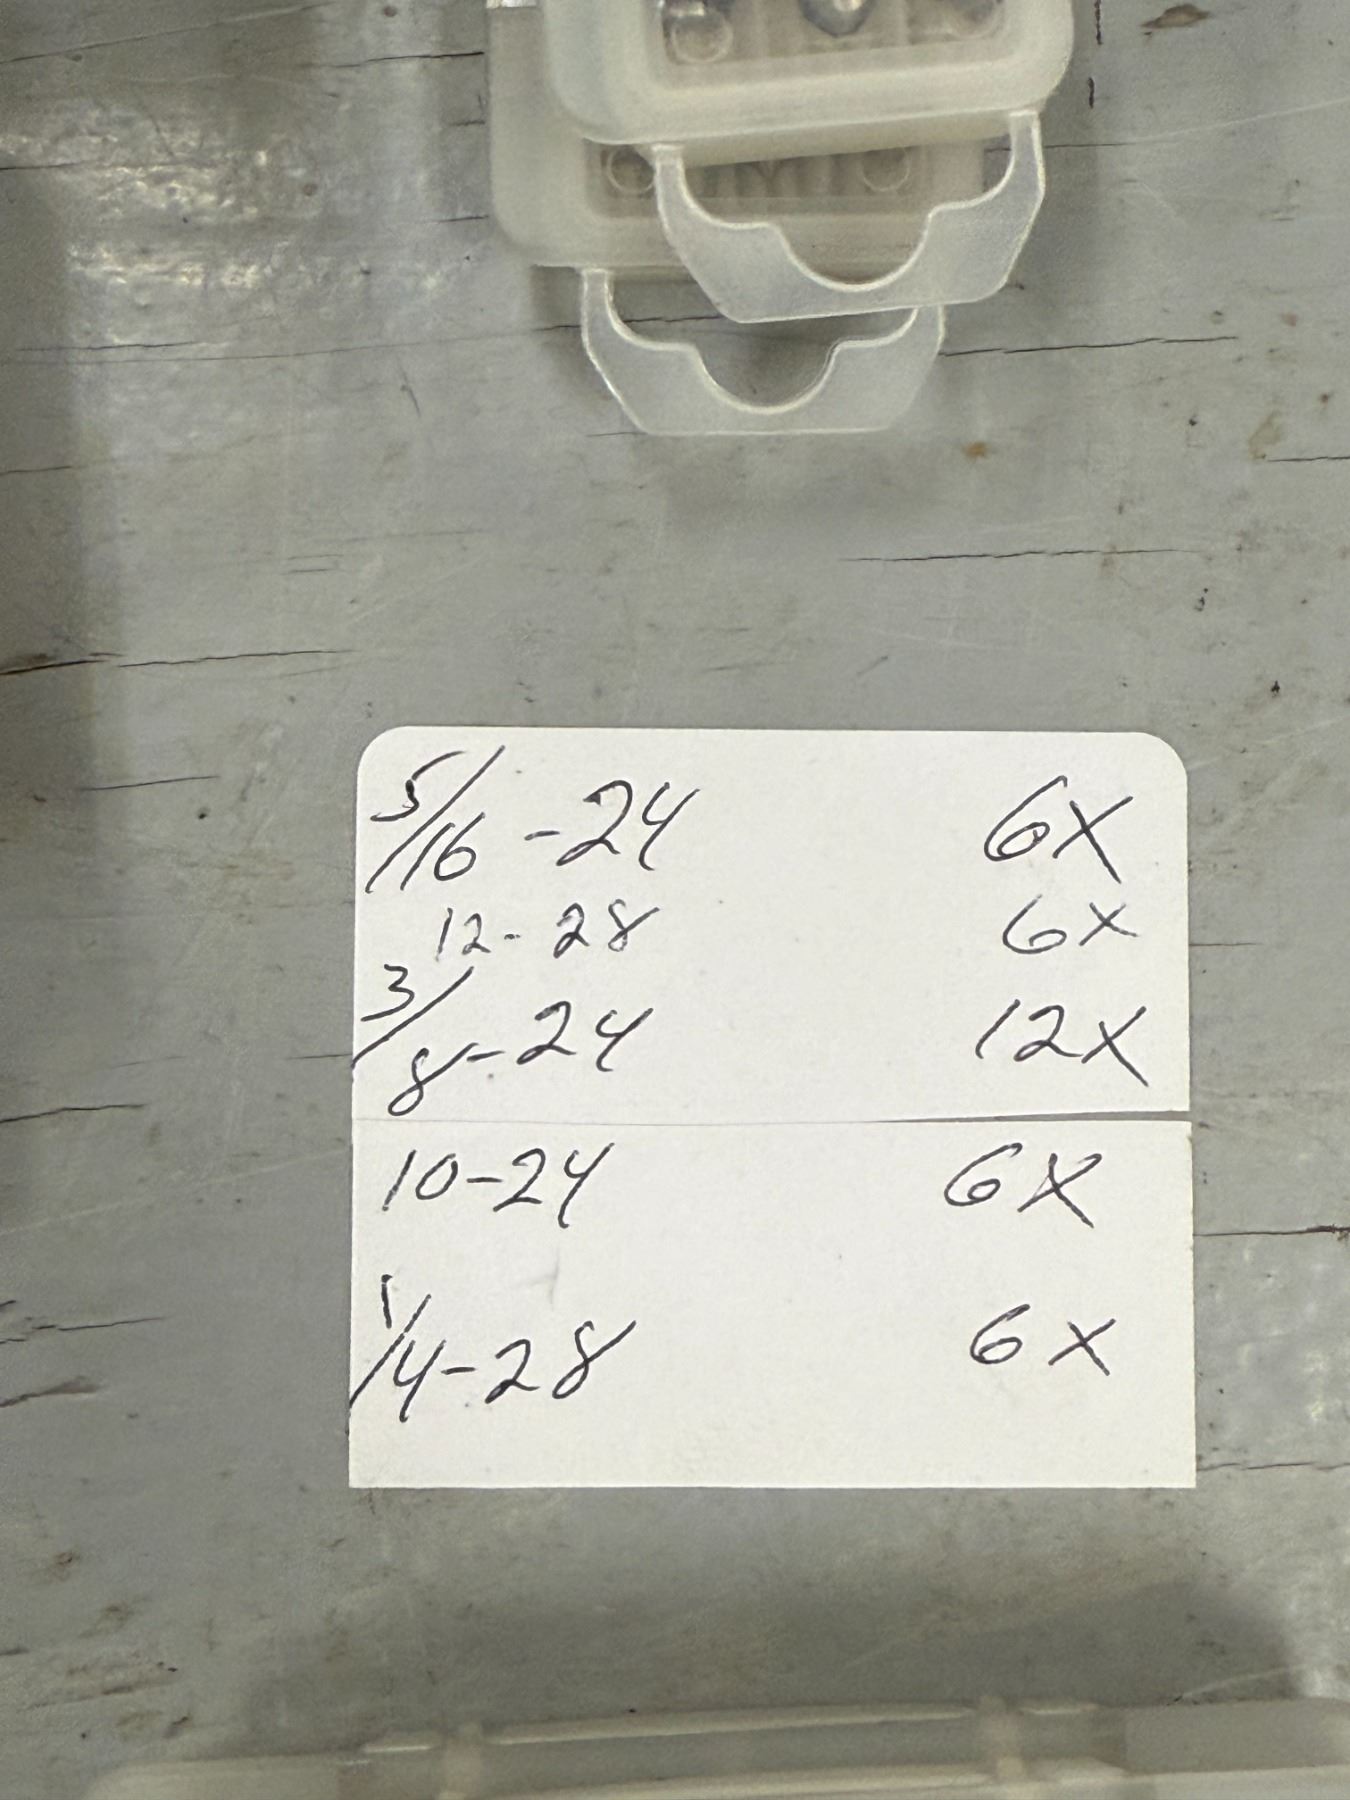 5/16 - 24 6X
12 - 28 6X
3/8 - 24 12X
10 - 24 6X
1/4 - 28 6X